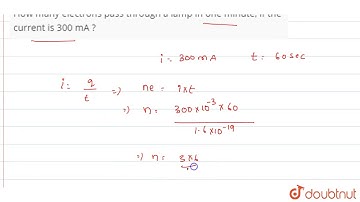 How many electrons pass through a lamp in one minute, if the
current is 300 mA ?
i = 300 mA t = 60 sec
i = q/t => ne = i×t
=> n = 300×10^-3×60 / 1.6×10^-19
=> n = 3×6
doubtnut